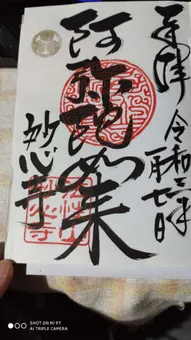 奉拝 令和三年
阿弥陀如来
妙心寺
SHOT ON MI 9T
AI TRIPLE CAMERA